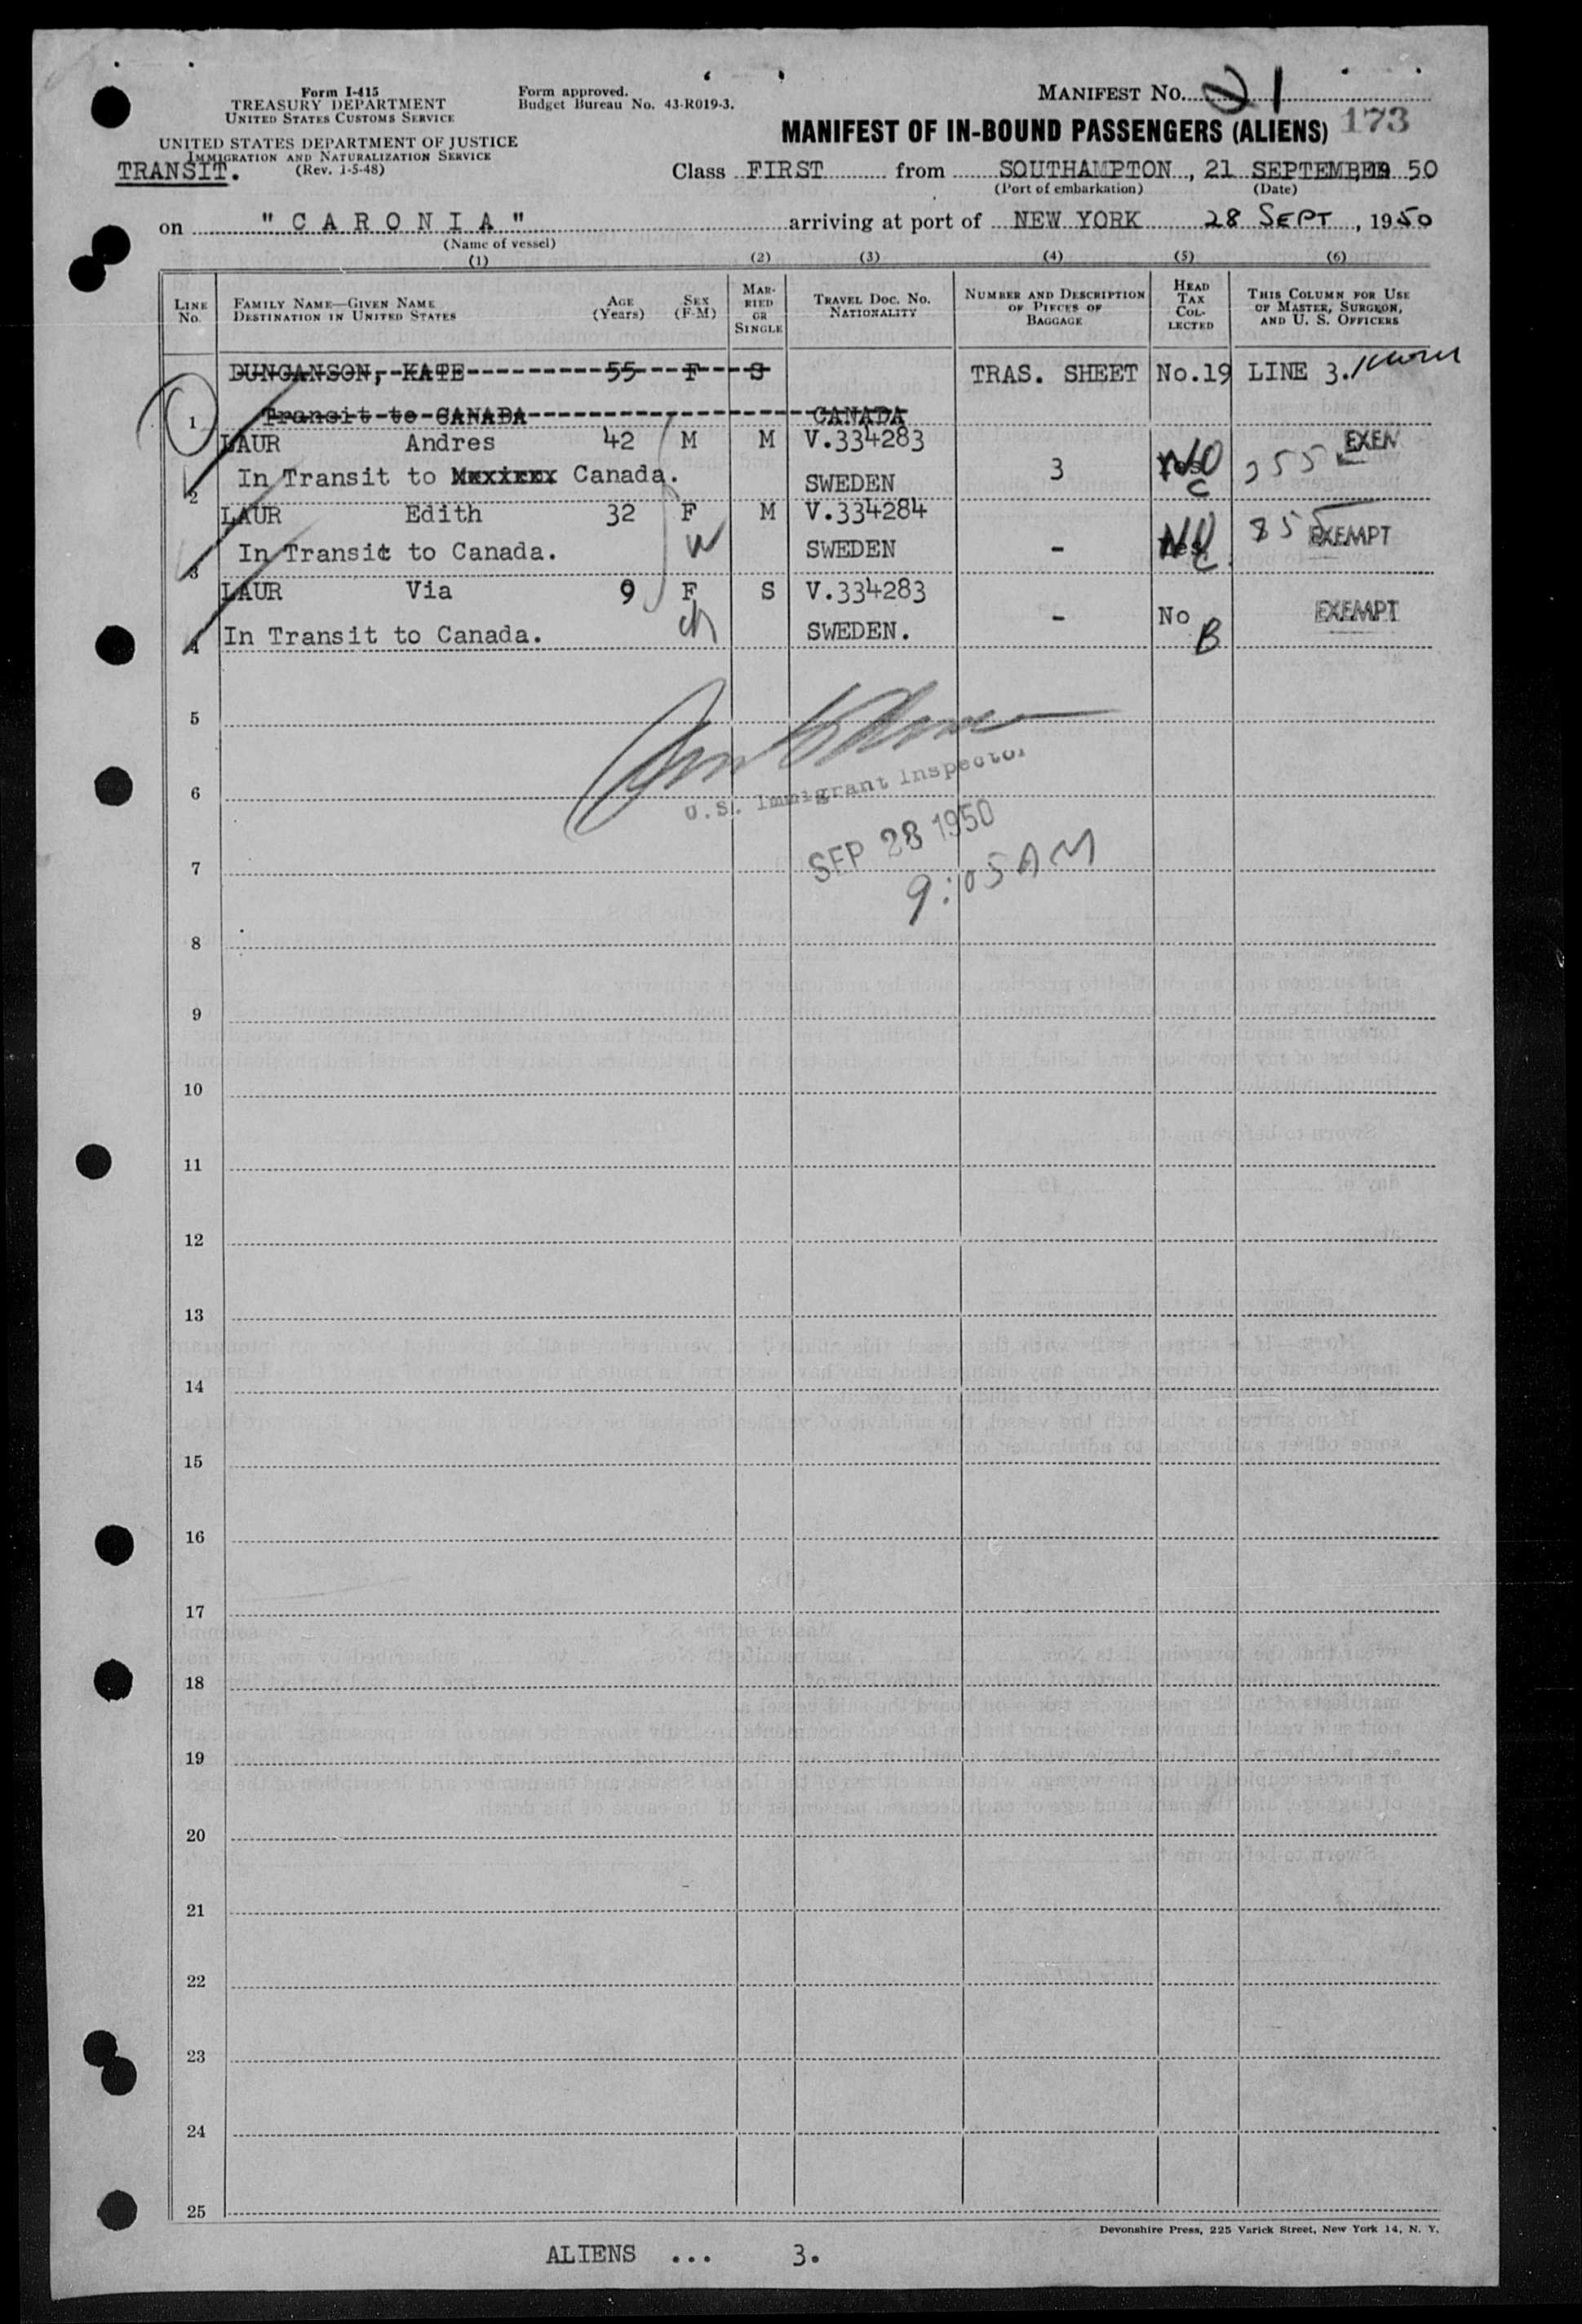 Form I-415
TREASURY DEPARTMENT
UNITED STATES CUSTOMS SERVICE
UNITED STATES DEPARTMENT OF JUSTICE
IMMIGRATION AND NATURALIZATION SERVICE
(Rev. 1-5-48)
TRANSIT.
Form approved.
Budget Bureau No. 43-R019-3.
MANIFEST NO. 21
MANIFEST OF IN-BOUND PASSENGERS (ALIENS) 173
Class FIRST from SOUTHAMPTON, 21 SEPTEMBER 50
(Port of embarkation) (Date)
on "CARONIA" arriving at port of NEW YORK 28 SEPT, 1950
(Name of vessel)
(1) (2) (3) (4) (5) (6)
LINE NO.
FAMILY NAME—GIVEN NAME
DESTINATION IN UNITED STATES
AGE (Years)
SEX (F-M)
MARRIED OR SINGLE
TRAVEL DOC. NO. NATIONALITY
NUMBER AND DESCRIPTION OF PIECES OF BAGGAGE
HEAD TAX COLLECTED
THIS COLUMN FOR USE OF MASTER, SURGEON, AND U. S. OFFICERS
DUNCANSON, KATE 55 F S TRAS. SHEET No.19 LINE 3.
1 Transit to CANADA CANADA
LAUR Andres 42 M M V.334283 EXEM
2 In Transit to Canada. SWEDEN 3 NO C
LAUR Edith 32 F M V.334284
3 In Transit to Canada. W SWEDEN - NO C 855 EXEMPT
LAUR Via 9 F S V.334283
4 In Transit to Canada. ch SWEDEN. - No B EXEMPT
5
U.S. Immigrant Inspector
6
SEP 28 1950
7
9:05 AM
8
9
10
11
12
13
14
15
16
17
18
19
20
21
22
23
24
25
Devonshire Press, 225 Varick Street, New York 14, N. Y.
ALIENS ... 3.